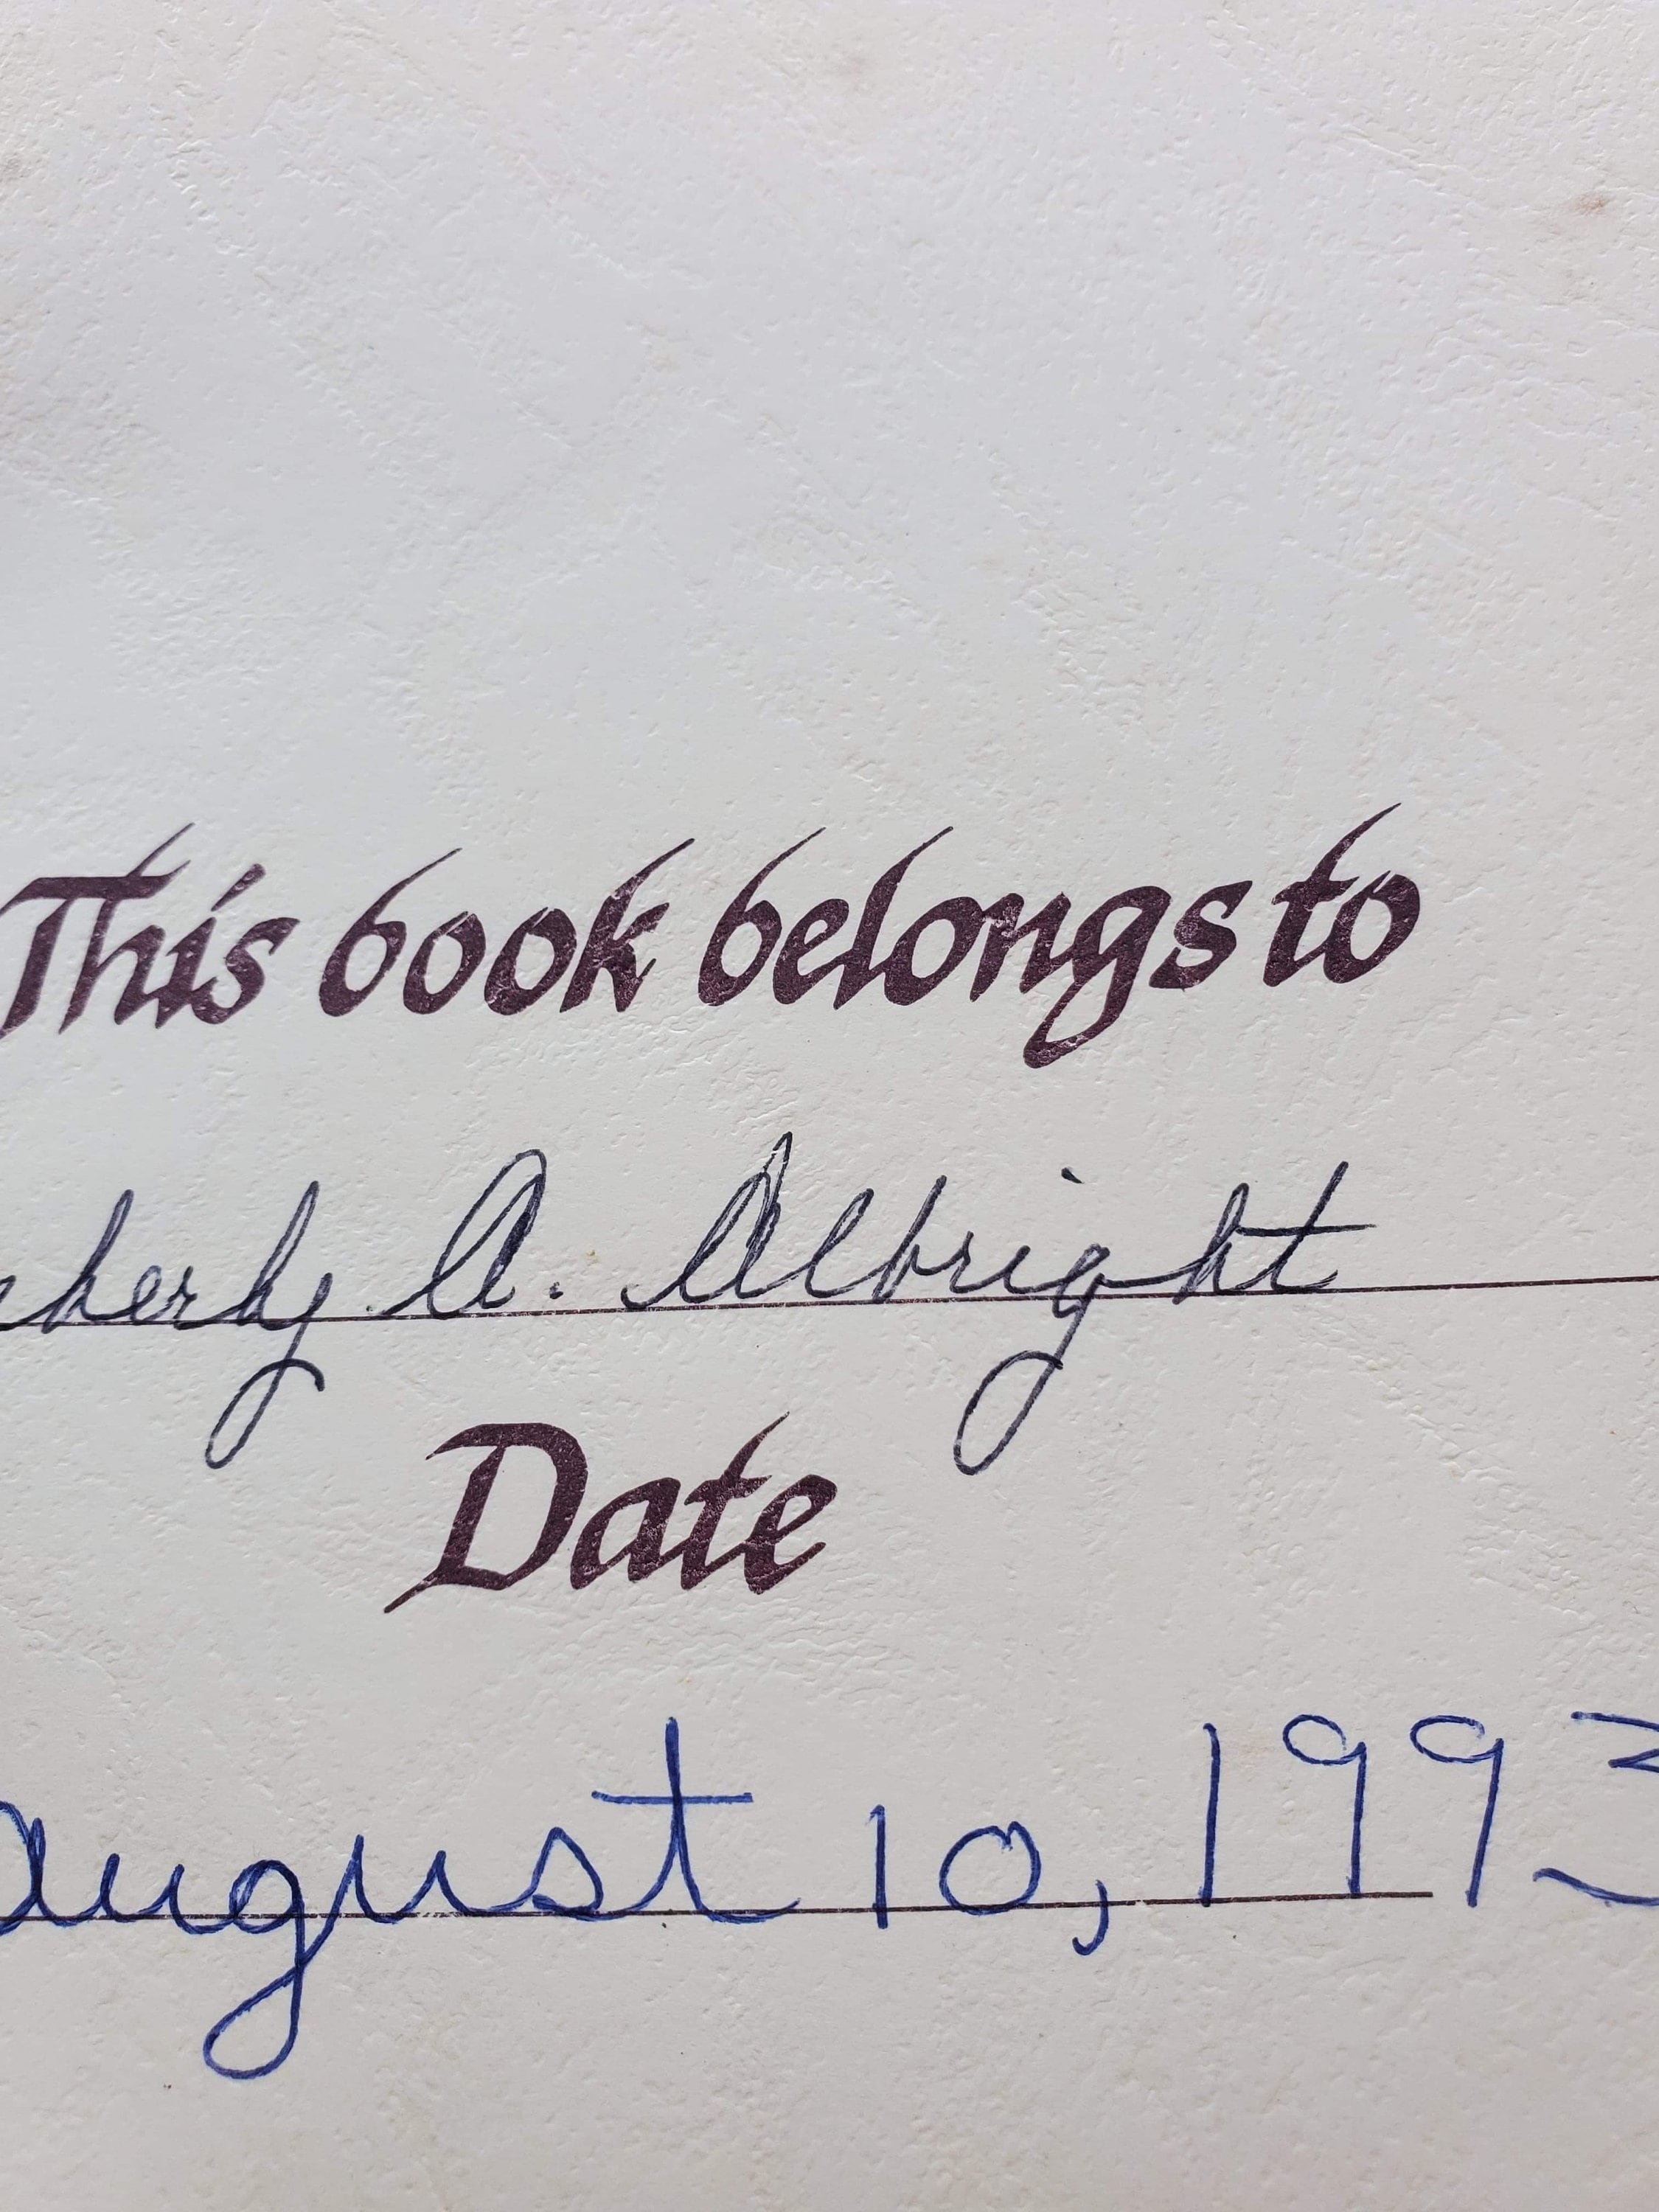 This book belongs to
A. Albright
Date
August 10, 1993